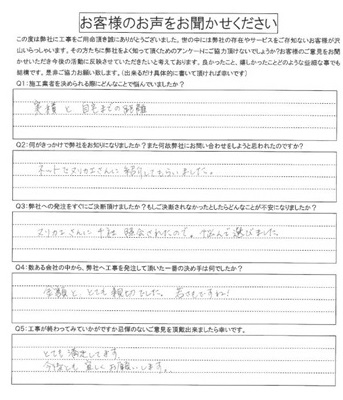 お客様のお声をお聞かせください
この度は弊社に工事をご用命頂き誠にありがとうございました。世の中には弊社の存在やサービスをご存知ないお客様が沢
山いらっしゃいます。その方たちに弊社をよく知って頂くためのアンケートにご協力頂けないでしょうか？お客様のご意見をお聞
かせいただき今後の活動に反映させていただきたいと考えております。良かったこと、嬉しかったことどのような些細な事でも
結構です。是非ご協力お願い致します。(出来るだけ具体的に書いて頂ければ幸いです)
Q1：施工業者を決められる際にどんなことで悩んでいましたか？
実績と自宅までの距離
Q2：何がきっかけで弊社をお知りになりましたか？また何故弊社にお問い合わせをしようと思われたのですか？
ネットとヌリカエさんに紹介してもらいました。
Q3：弊社への発注をすぐにご決断頂けましたか？もしご決断されなかったとしたらどんなことが不安になりましたか？
ヌリカエさんに 社 紹介されたので。悩んで選びました。
Q4：数ある会社の中から、弊社へ工事を発注して頂いた一番の決め手は何でしたか？
金額と、とても親切でした。
Q5：工事が終わってみていかがですか忌憚のないご意見を頂戴出来ましたら幸いです。
とても満足してます。
今後とも宜しくお願いします。